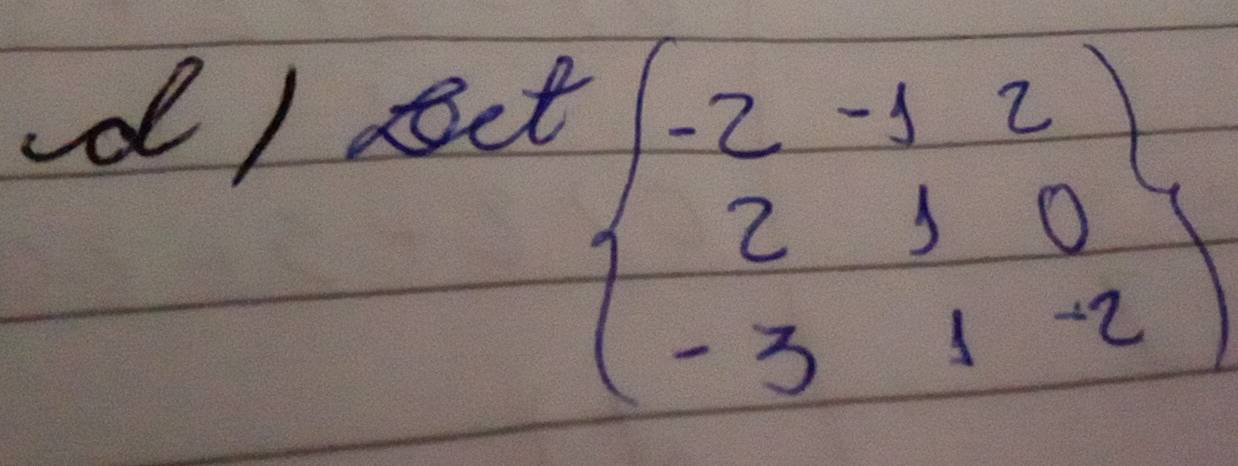 d) Det ( -2 -1 2 )
2 1 0
-3 1 -2